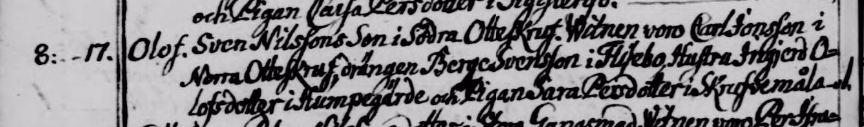 och Pigan Caisa Persdotter i
8. 17. Olof. Sven Nilssons Son i Södra Otteskruf. Witnen voro Carl Jonsson i
Norra Otteskruf, drängen Berge Svensson i Flyebo, Hustru Ingierd O-
lofsdotter i Humpegärde och Pigan Sara Persdotter i Skrufvemåla
Witnen voro Per